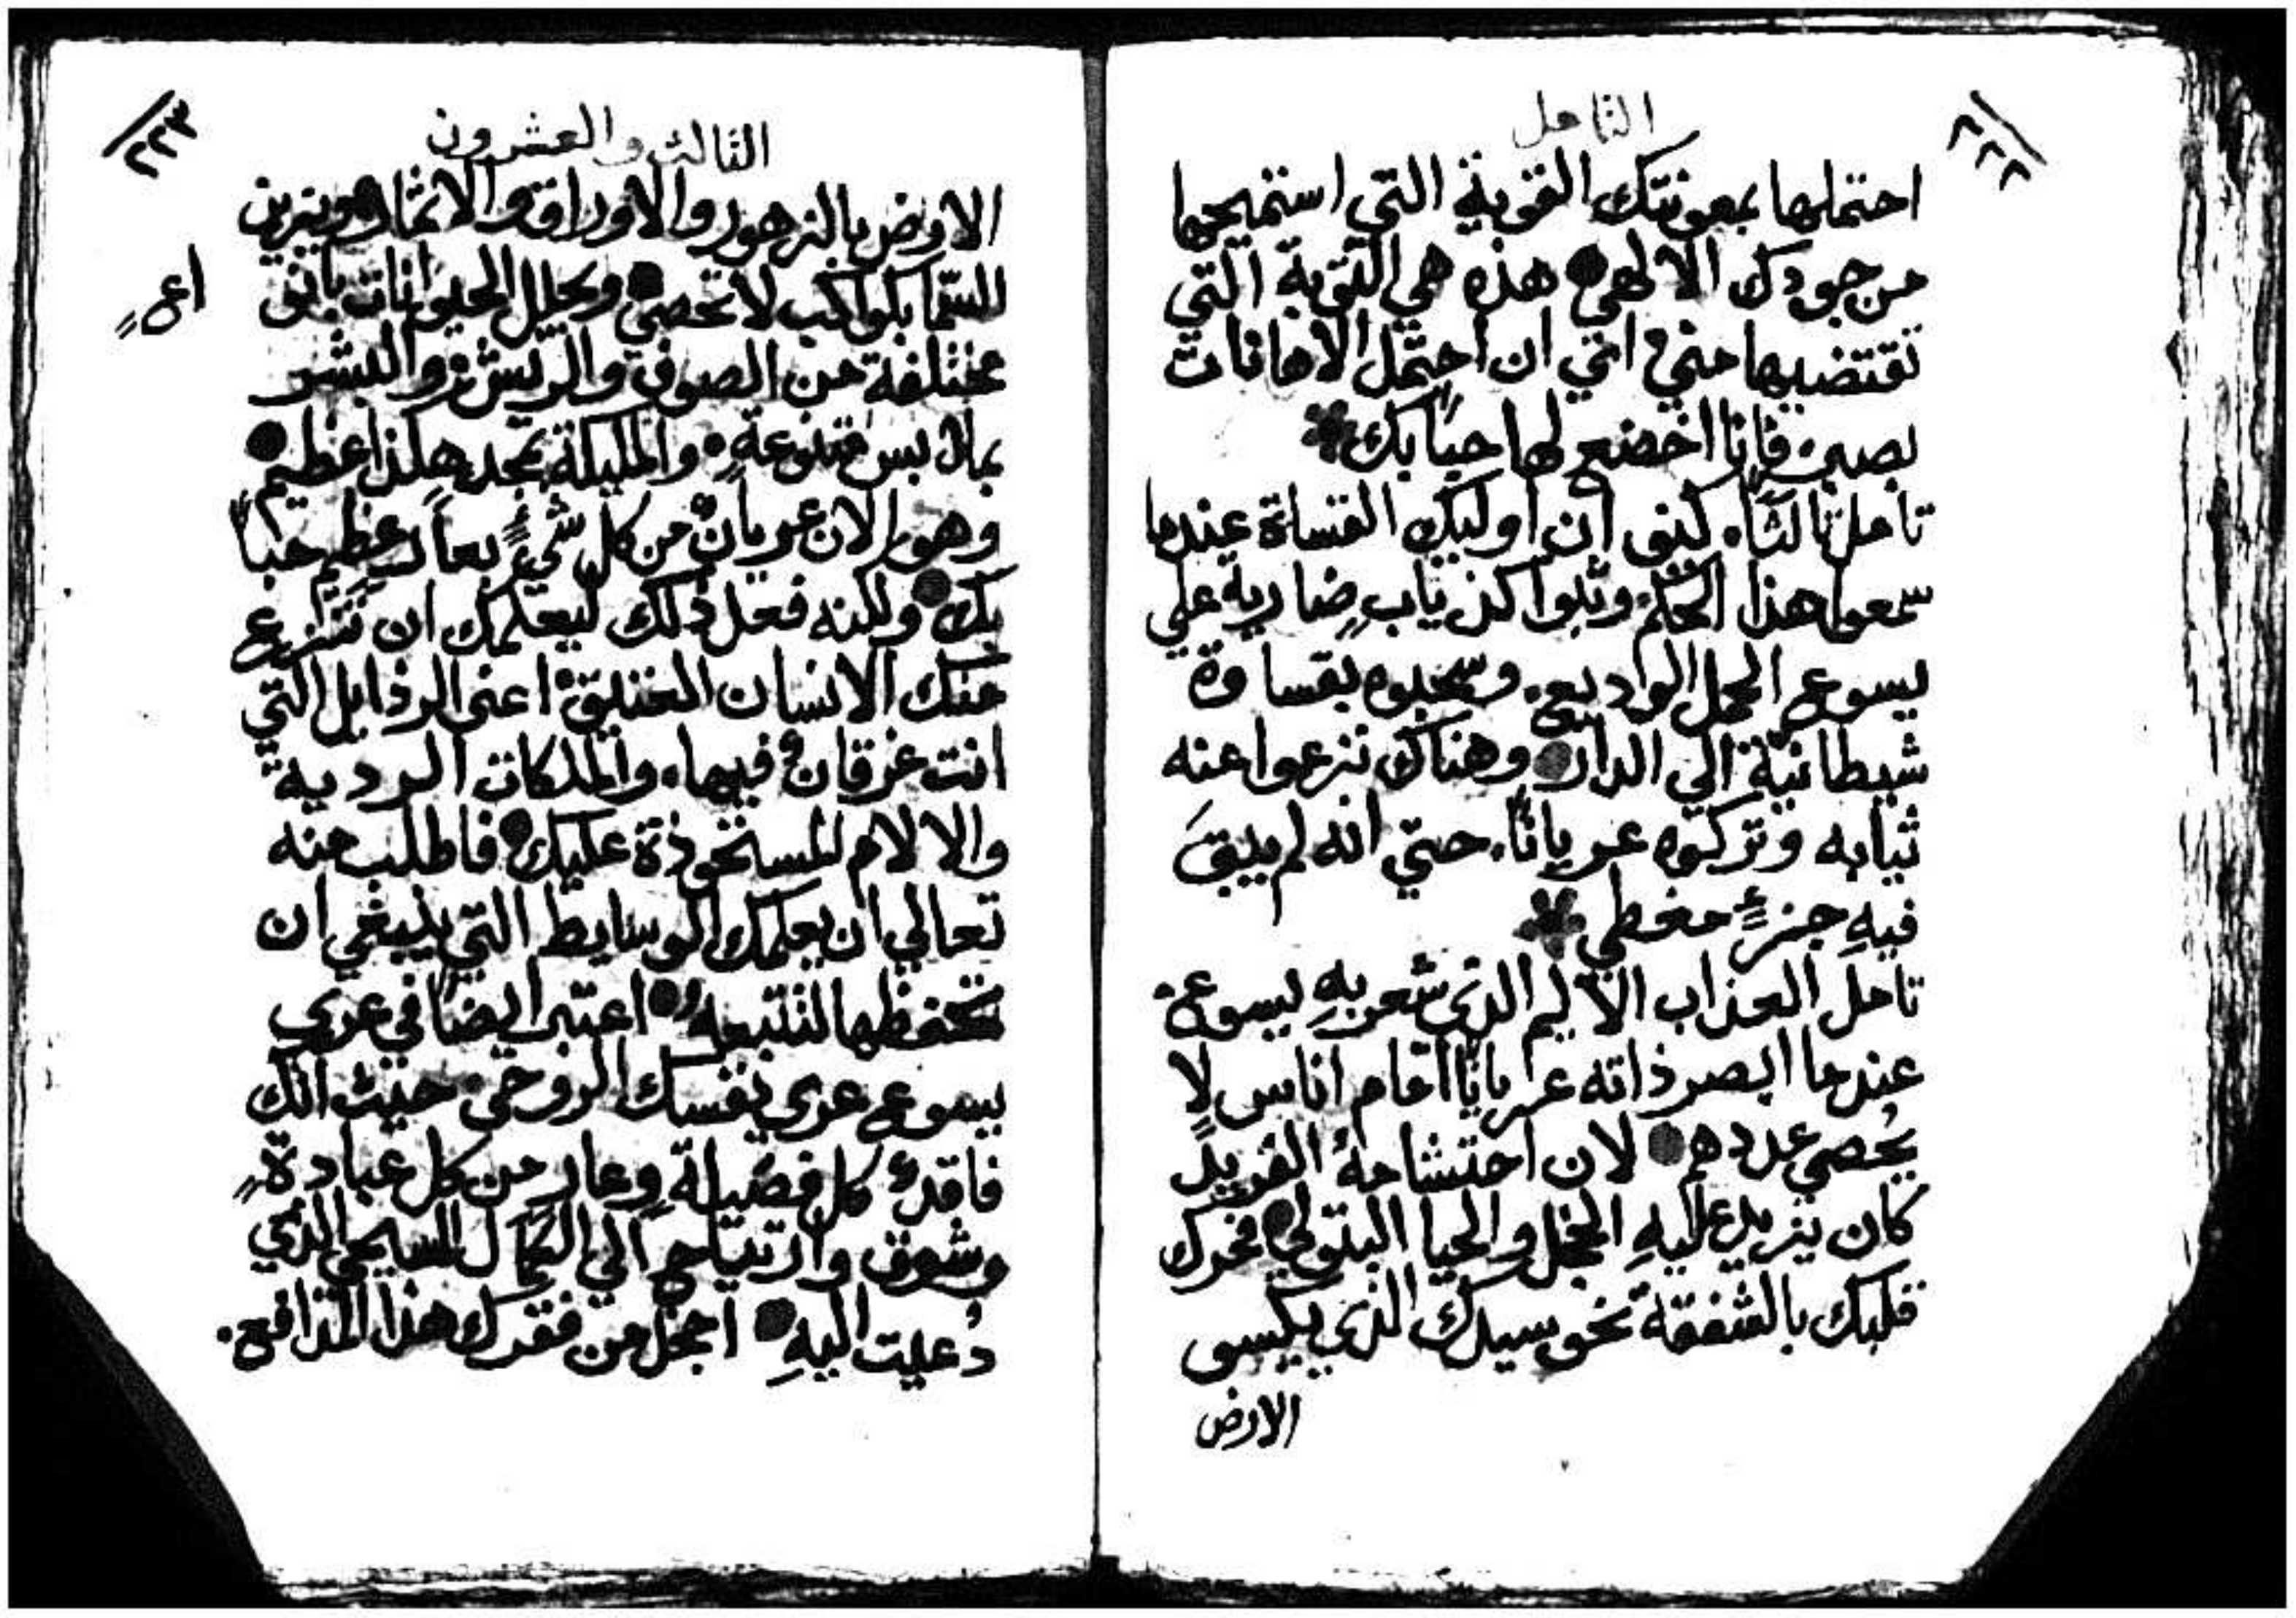 ٢٢٢
التامل
احتملها بمعونتك القوية التي استميحها
من جودك الالهي هذه هي التوبة التي
تقتضيها مني اعني ان احتمل الاهانات
بصبر فانا اخضع لها حبًا بك
تامل ثالثًا كيف ان اوليك القساة عندما
سمعوا هذا الحكم وثبوا كذياب ضارية علي
يسوع الحمل الوديع وسحبوه بقساوة
شيطانية الي الدار وهناك نزعوا عنه
ثيابه وتركوه عريانًا حتي انه لم يبقَ
فيهِ جزءٍ مغطي
تامل العذاب الاليم الذي شعر بهِ يسوع
عندما ابصر ذاته عريانًا امام اناس لا
يُحصي عددهم لان احتشامهُ الفريد
كان يزيد عليهِ الخجل والحيا البتولي فحرك
قلبك بالشفقة نحو سيدك الذي يكسى
الارض
٢٢٣
الثالث والعشرون
الارض بالزهور والاوراق والاثمار ويزين
السما بكواكب لا تحصي ويجلل الحيوانات بانواع
مختلفة من الصوف والريش والبشر
بملابس متنوعةٍ والمليكة بمجد هكذا عظيم
وهو الان عريانٌ من كل شيءٍ بعار عظيم حبًا
بك ولكنه فعل ذلك ليعلمك ان تنزع
منك الانسان العتيق اعني الرذايل التي
انت غرقانٌ فيها والملكات الردية
والالام المستحوذة عليك فاطلب منه
تعالي ان يعلمك الوسايط التي ينبغي ان
تحفظها لتتبعه اعتبر ايضًا في عري
يسوع عري نفسك الروحي حيث انك
فاقدٌ كل فضيلة وعارٍ من كل عبادةٍ
وشوق وارتياح الي الكمال المسيحي الذي
دُعيت اليهِ اخجل من فقرك هذا المدافع